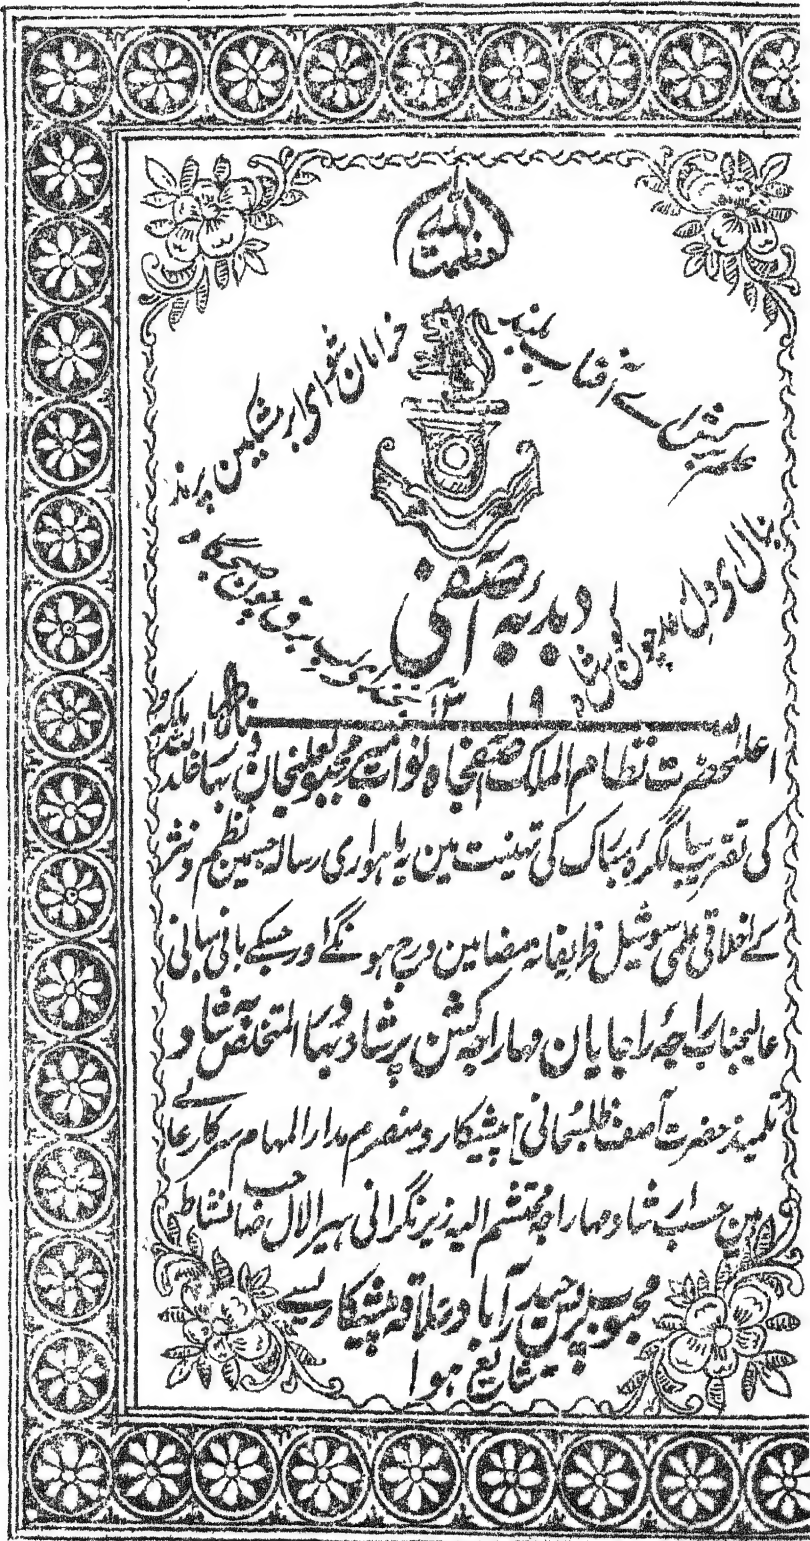 عظمت للہ
علم برکش اے آفتاب بلند
خرامان شو ای ابر مشکین پرند
بنال ای دل رعد چون کوس شاہ
بخند ای لب برق چون صبحگاہ
دبدبہ آصفی
اعلیٰحضرت نظام الملک آصفجاہ نواب میر محبوب علیخان بہادر خلد اللہ ملکہ
کی تقریب سالگرہ مبارک کی تہنیت مین یہ ماہواری رسالہ جسمین نظم و نثر
کے اخلاقی علمی سوشیل ظریفانہ مضامین درج ہونگے اور جسکے بانی مبانی
عالیجناب راجۂ راجایان مہاراجہ کشن پرشاد بہادر المتخلص بہ شاد
تلمیذ حضرت آصف ظل سبحانی پیشکار و منصرم مدار المہام سرکار عالے
ہین حسب ارشاد مہاراجہ محتشم الیہ زیر نگرانی ہیرا لال صاحب نشاط
محبوب پریس حیدرآباد علاقہ پیشکاری سے
شایع ہوا